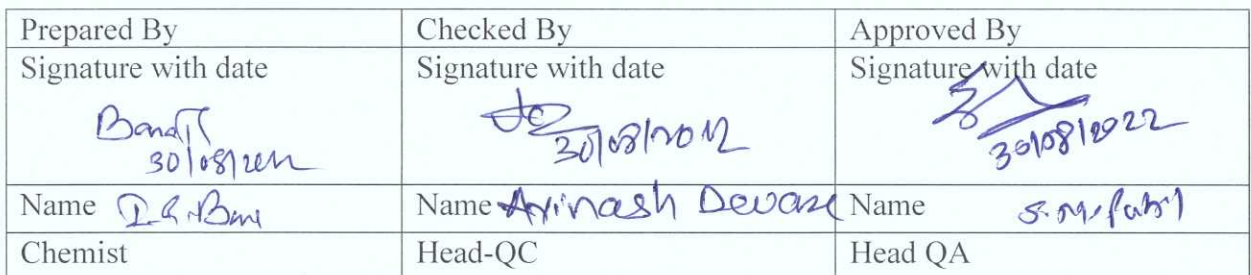 Prepared By Checked By Approved By
Signature with date Signature with date Signature with date
30/08/2022
Name Name Avinash Devare Name S. M. Patil
Chemist Head-QC Head QA